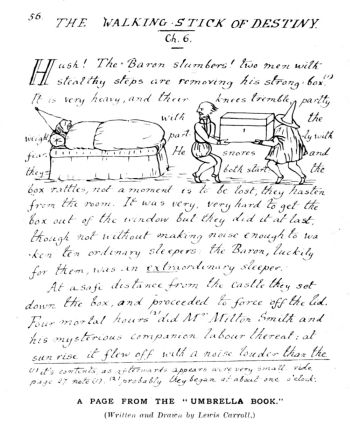 56.
THE WALKING-STICK OF DESTINY.
Ch. 6.
Hush! The Baron slumbers! two men with
stealthy steps are removing his strong-box.(1)
It is very heavy, and their knees tremble, partly
with the
weight partly with
fear. He snores and
they both start: the
box rattles, not a moment is to be lost, they hasten
from the room. It was very, very hard to get the
box out of the window but they did it at last,
though not without making noise enough to wa-
ken ten ordinary sleepers: the Baron, luckily
for them, was an extraordinary sleeper.
At a safe distance from the castle they set
down the box, and proceeded to force off the lid.
Four mortal hours(2) did Mr Milton Smith and
his mysterious companion labour thereat: at
sunrise it flew off with a noise louder than the
(1) it's contents as afterwards appears were very small. vide
page 27 note (1). (2) probably they began at about one o'clock.
A PAGE FROM THE "UMBRELLA BOOK."
(Written and Drawn by Lewis Carroll.)